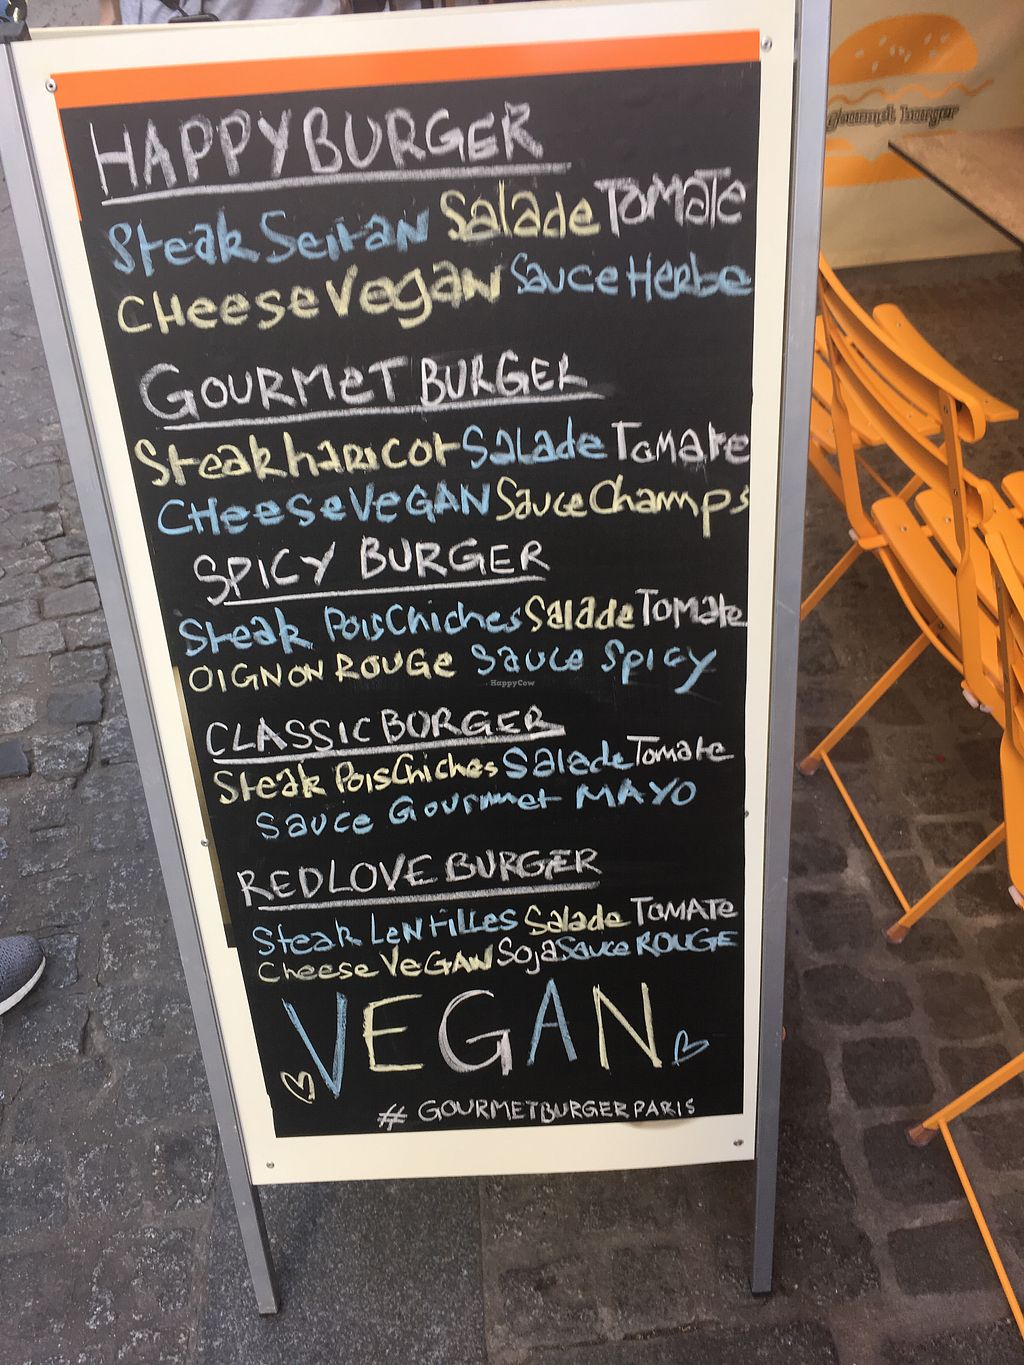 HAPPY BURGER
Steak Seitan Salade TOMATE
CHeese Vegan Sauce Herbe
GOURMET BURGER
Steak haricot Salade Tomate
CHeese VEGAN Sauce Champs
SPICY BURGER
Steak Pois Chiches Salade Tomate
OIGNON ROUGE Sauce Spicy
CLASSIC BURGER
Steak Pois Chiches Salade Tomate
Sauce Gourmet MAYO
REDLOVE BURGER
Steak LeNtilles Salade TOMATe
Cheese VeGAN Soja Sauce ROUGE
VEGAN
# GOURMETBURGERPARIS
gourmet burger
HappyCow